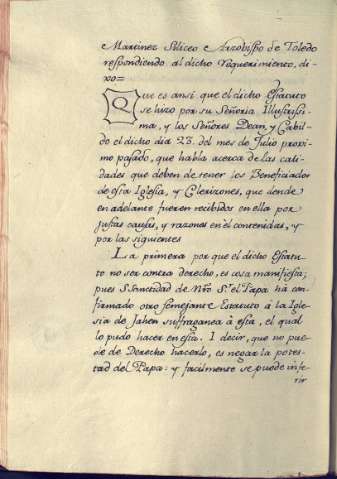 Martinez Siliceo Arzobispo de Toledo
respondiendo al dicho requerimiento, di-
xo=
Que es ansi que el dicho Estatuto
se hizo por su Señoria Illustrissi-
ma, y los Señores Dean, y Cabil-
do el dicho dia 23. del mes de Julio proxi-
mo pasado, que habla acerca de las cali-
dades que deben de tener los Beneficiados
de esta Iglesia, y Clerizones, que dende
en adelante fueren recibidos en ella por
justas causas, y razones en èl contenidas, y
por las siguientes
La primera por que el dicho Estatu-
to no ser contra derecho, es cosa manifiesta;
pues S. Santidad de Nrõ S.r el Papa ha con-
firmado otro semejante Estatuto à la Igle-
sia de Jahen suffraganea à esta, el qual
lo pudo hacer en esta. I decir, que no pue-
de de Derecho hacerlo, es negar la potes-
tad del Papa: y facilmente se puede infe-
rir